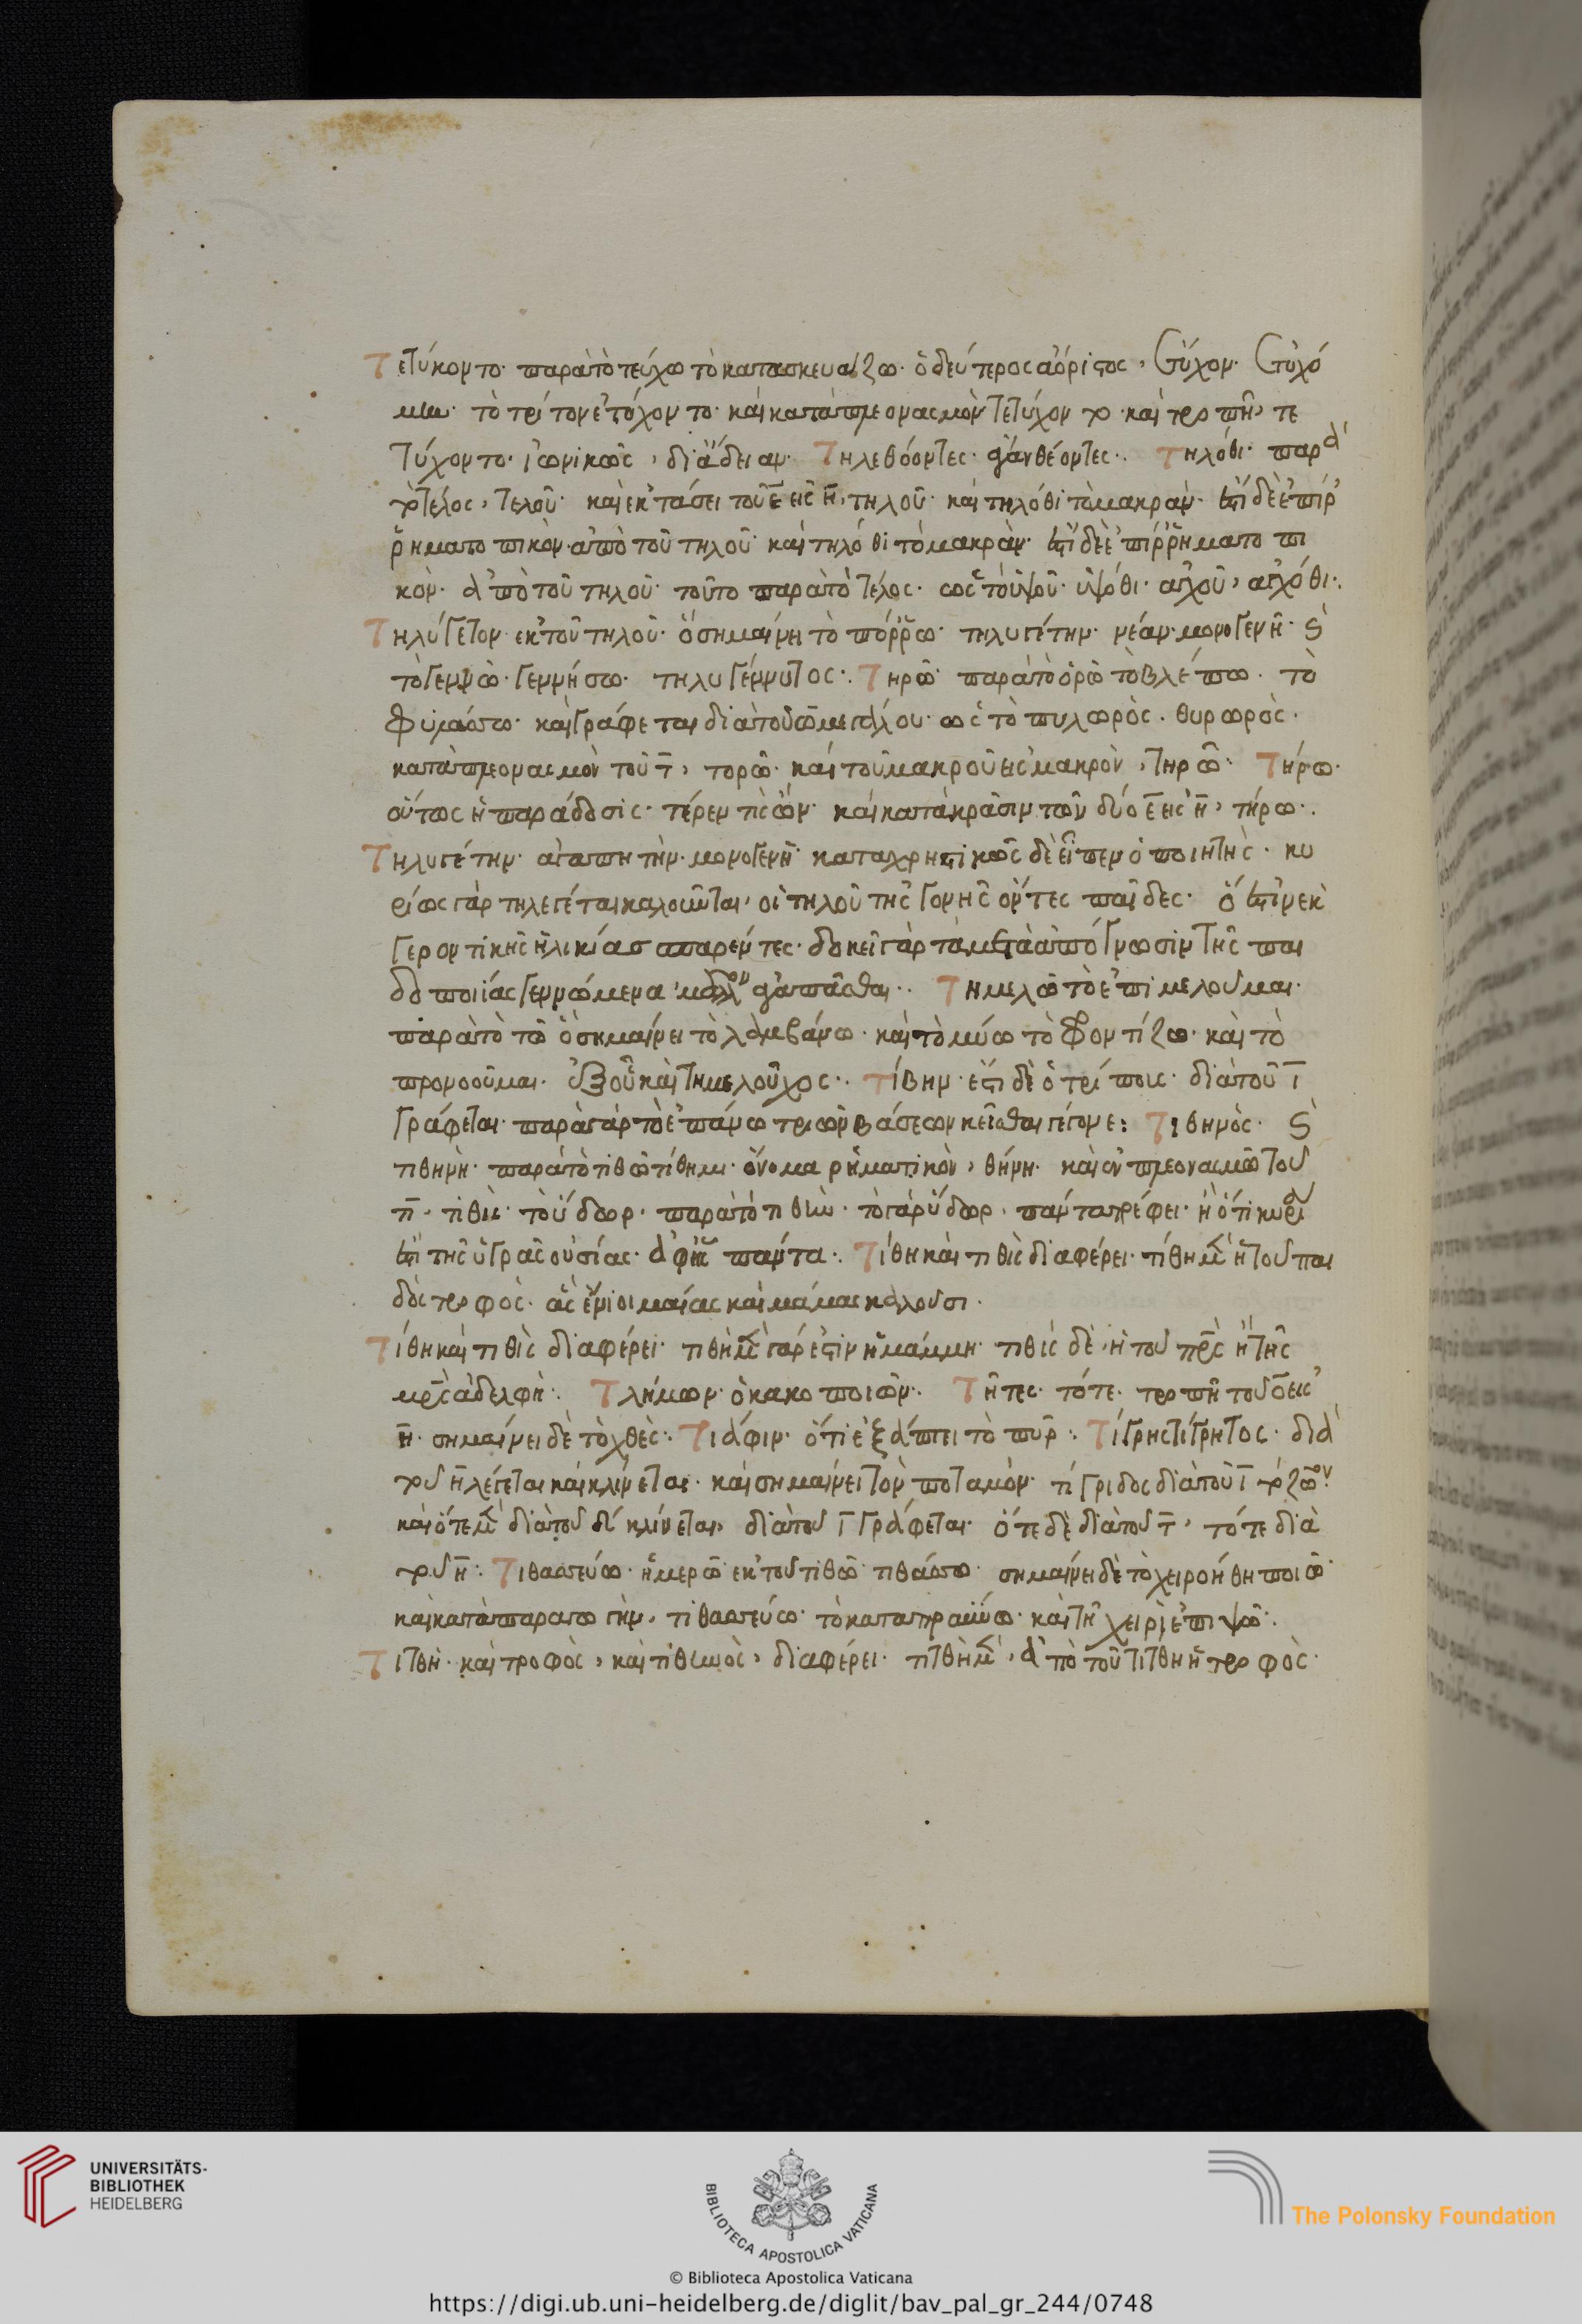 Τετύκοντο· παρὰ τὸ τεύχω τὸ κατασκευάζω· ὁ δεύτερος ἀόριστος, ἔτυχον· ἐτυχό
μην· τὸ τρίτον ἐτύχοντο· καὶ κατὰ πλεονασμὸν τετύχοντο· καὶ τροπῆ, τε
τύχοντο· ἰωνικῶς, διἄδειαν· Τηλεθόοντες· ἀανθέοντες·. Τηλόθι· παρὰ
τὸ τέλος, τελοῦ· καὶ ἐκτάσει τοῦ ε̄ εἰς η̄, τηλοῦ· καὶ τηλόθι τὸ μακράν· ἔστι δὲ ἐπίρ
ῥηματοπικὸν· ἀπὸ τοῦ τηλοῦ· καὶ τηλόθι τὸ μακρὰν· ἔστι δὲ ἐπιρρηματοπι
κὸν· ἀπὸ τοῦ τηλοῦ· τοῦτο παρὰ τὸ τέλος· ὡς τὸ ὑψοῦ· ὑψόθι· ἀγχοῦ, ἀγχόθι·.
Τηλύγετον· ἐκ τοῦ τηλοῦ· ὃ σημαίνει τὸ πόρρω· τηλυγέτην· νέαν· μονογενῆ· καὶ
τὸ γεννῶ· γεννήσω· τηλυγέννυτος·. Τηρῶ· παρὰ τὸ ὁρῶ τὸ βλέπω· τὸ
φυλάσσω· καὶ γράφεται διὰ τοῦ ω μεγάλου· ὡς τὸ πυλωρὸς· θυρωρὸς·
κατὰ πλεονασμὸν τοῦ τ̄, τορῶ· καὶ τοῦ μακροῦ εἰς μακρὸν, τηρῶ· Τήρω·
οὕτως ἡ παράδοσις· τέρεν τις ὢν· καὶ κατὰ κρᾶσιν τῶν δύο ε̄ εἰς η̄, τήρω·.
Τηλυγέτην· ἀγαπητὴν· μονογενῆ· καταχρηστικῶς δὲ εἶπεν ὁ ποιητὴς· κυ
ρίως γὰρ τηλεγέται καλοῦνται, οἱ τηλοῦ τῆς γονῆς ὄντες παῖδες· ὅ ἐστιν ἐκ
γεροντικῆς ἡλικίας σπαρέντες· δοκεῖ γὰρ τὰ μετὰ ἀπόγνωσιν τῆς παι
δοποιίας γεννώμενα μᾶλλον ἀγαπᾶσθαι·. Τημελῶ τὸ ἐπιμελοῦμαι·
παρὰ τὸ τῶ ὃ σημαίνει τὸ λαμβάνω· καὶ τὸ μύω τὸ φροντίζω· καὶ τὸ
προνοοῦμαι· ἐξ οὗ καὶ τημελοῦχος·. Τίβην· ἔστι δὲ ὁ τρίπους· διὰ τοῦ ῑ
γράφεται· παρὰ γὰρ τὸ ἐπάνω τριῶν βάσεων κεῖσθαι γέγονε: Τιθηνὸς· καὶ
τιθηνὴ· παρὰ τὸ τιθῶ τίθημι· ὄνομα ρηματικὸν, θήνη· καὶ ἐν πλεονασμῶ τοῦ
τι· τιθὶς· τὸ ὕδωρ· παρὰ τὸ τιθῶ· τὸ γὰρ ὕδωρ· πάντα τρέφει· ἢ ὅτι κυρίως
ἐπὶ τῆς ὑγρᾶς οὐσίας· ἀφ' ἧς πάντα·. Τίθη καὶ τιθὶς διαφέρει· τίθη μὲν ἡ τοῦ παι
δὸς τροφὸς· ἃς ἔνιοι μαίας καὶ μάμας καλοῦσι·
Τίθη καὶ τιθὶς διαφέρει· τιθὴ μὲν γάρ ἐστιν ἡ μάμμη· τιθὶς δὲ, ἡ τοῦ πρς ἢ τῆς
μρς ἀδελφὴ·. Τλήμων· ὁ κακοποιῶν·. Τῆτες· τότε· τροπῆ τοῦ ο̄ εἰς
η̄· σημαίνει δὲ τὸ χθὲς·. Τιάφιν· ὅτι ἐξάπτει τὸ πῦρ·. Τίγρης τίγρητος· διὰ
τοῦ η̄ λέγεται καὶ κλίνεται· καὶ σημαίνει τὸν ποταμὸν· τίγριδος διὰ τοῦ ῑ τὸ ζῶον·
καὶ ὅτε μὲν διὰ τοῦ δί κλίνεται, διὰ τοῦ ῑ γράφεται· ὅτε δὲ διὰ τοῦ τ̄, τότε διὰ
τοῦ η̄·. Τιθασσεύω· ἡμερῶ· ἐκ τοῦ τιθῶ· τιθάσσω· σημαίνει δὲ τὸ χειροήθη ποιῶ·
καὶ κατὰ παραγωγὴν, τιθασσεύω· τὸ καταπραΰνω· καὶ τῆ χειρὶ ἐπιψῶ·.
Τίτθη· καὶ τροφὸς, καὶ τιθηνὸς, διαφέρει· τίτθη μὲν, ἀπὸ τοῦ τίτθη ἡ τροφὸς·
UNIVERSITÄTS-
BIBLIOTHEK
HEIDELBERG
BIBLIOTECA APOSTOLICA VATICANA
The Polonsky Foundation
© Biblioteca Apostolica Vaticana
https://digi.ub.uni-heidelberg.de/diglit/bav_pal_gr_244/0748